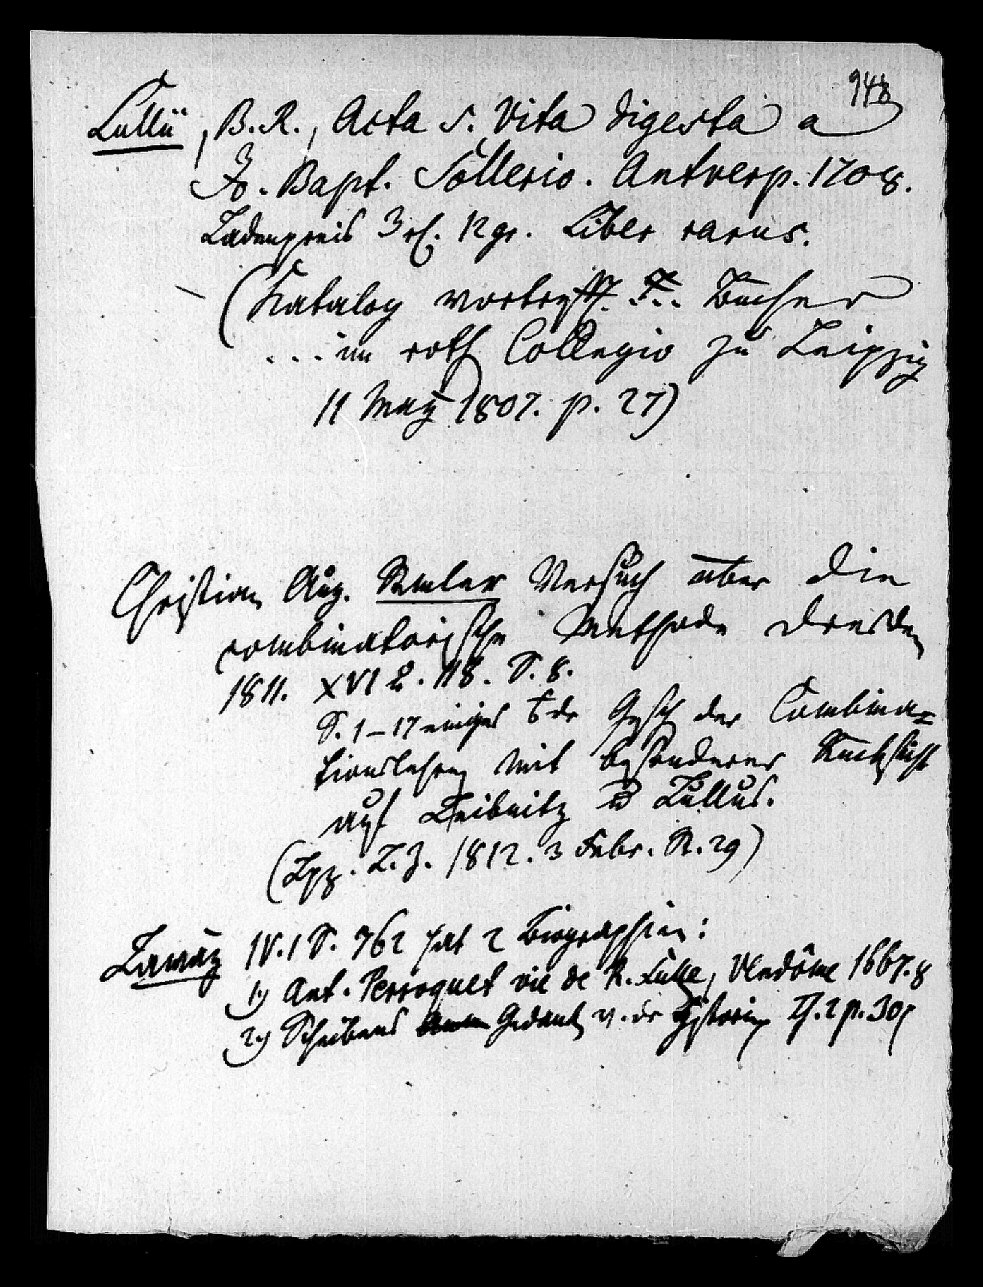 948
Lullii, B. R., Acta s. Vita digesta a
Jo. Bapt. Sollerio. Antverp. 1708.
Ladenpreis 3 rl. 12 gr. Liber rarus.
(Katalog vortreffl. Bücher
... im roth. Collegio zu Leipzig
11 May 1807. p. 27)
Christian Aug. Semler Versuch über die
combinatorische Methode Dresden
1811. XVI u. 118. S. 8.
S. 1–17 einiges der Gesch der Combina=
tionslehre mit besonderer Rücksicht
auf Leibnitz u Lullus.
(Lpz. L. Z. 1812. 3 Febr. N. 29)
Lawätz IV. 1 S. 762 hat 2 Biographien:
1) Ant. Perroquet vie de R. Lulle, Vendôme 1667. 8
2) Scheibens Gedank v. de Historien Th. 2 p. 301